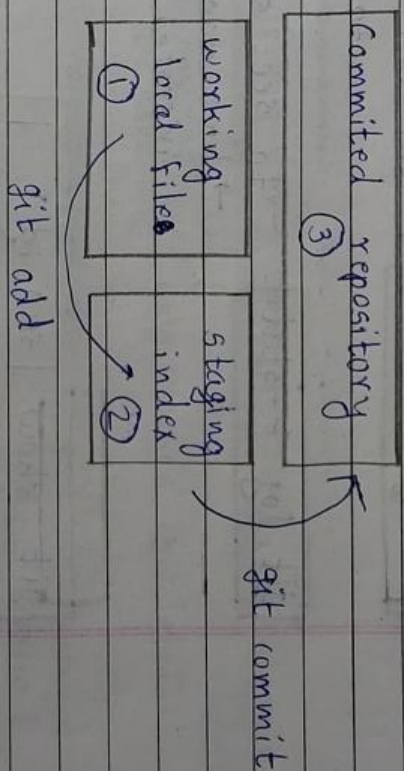 Commited repository
③
working
local files
①
staging
index
②
git commit
git add